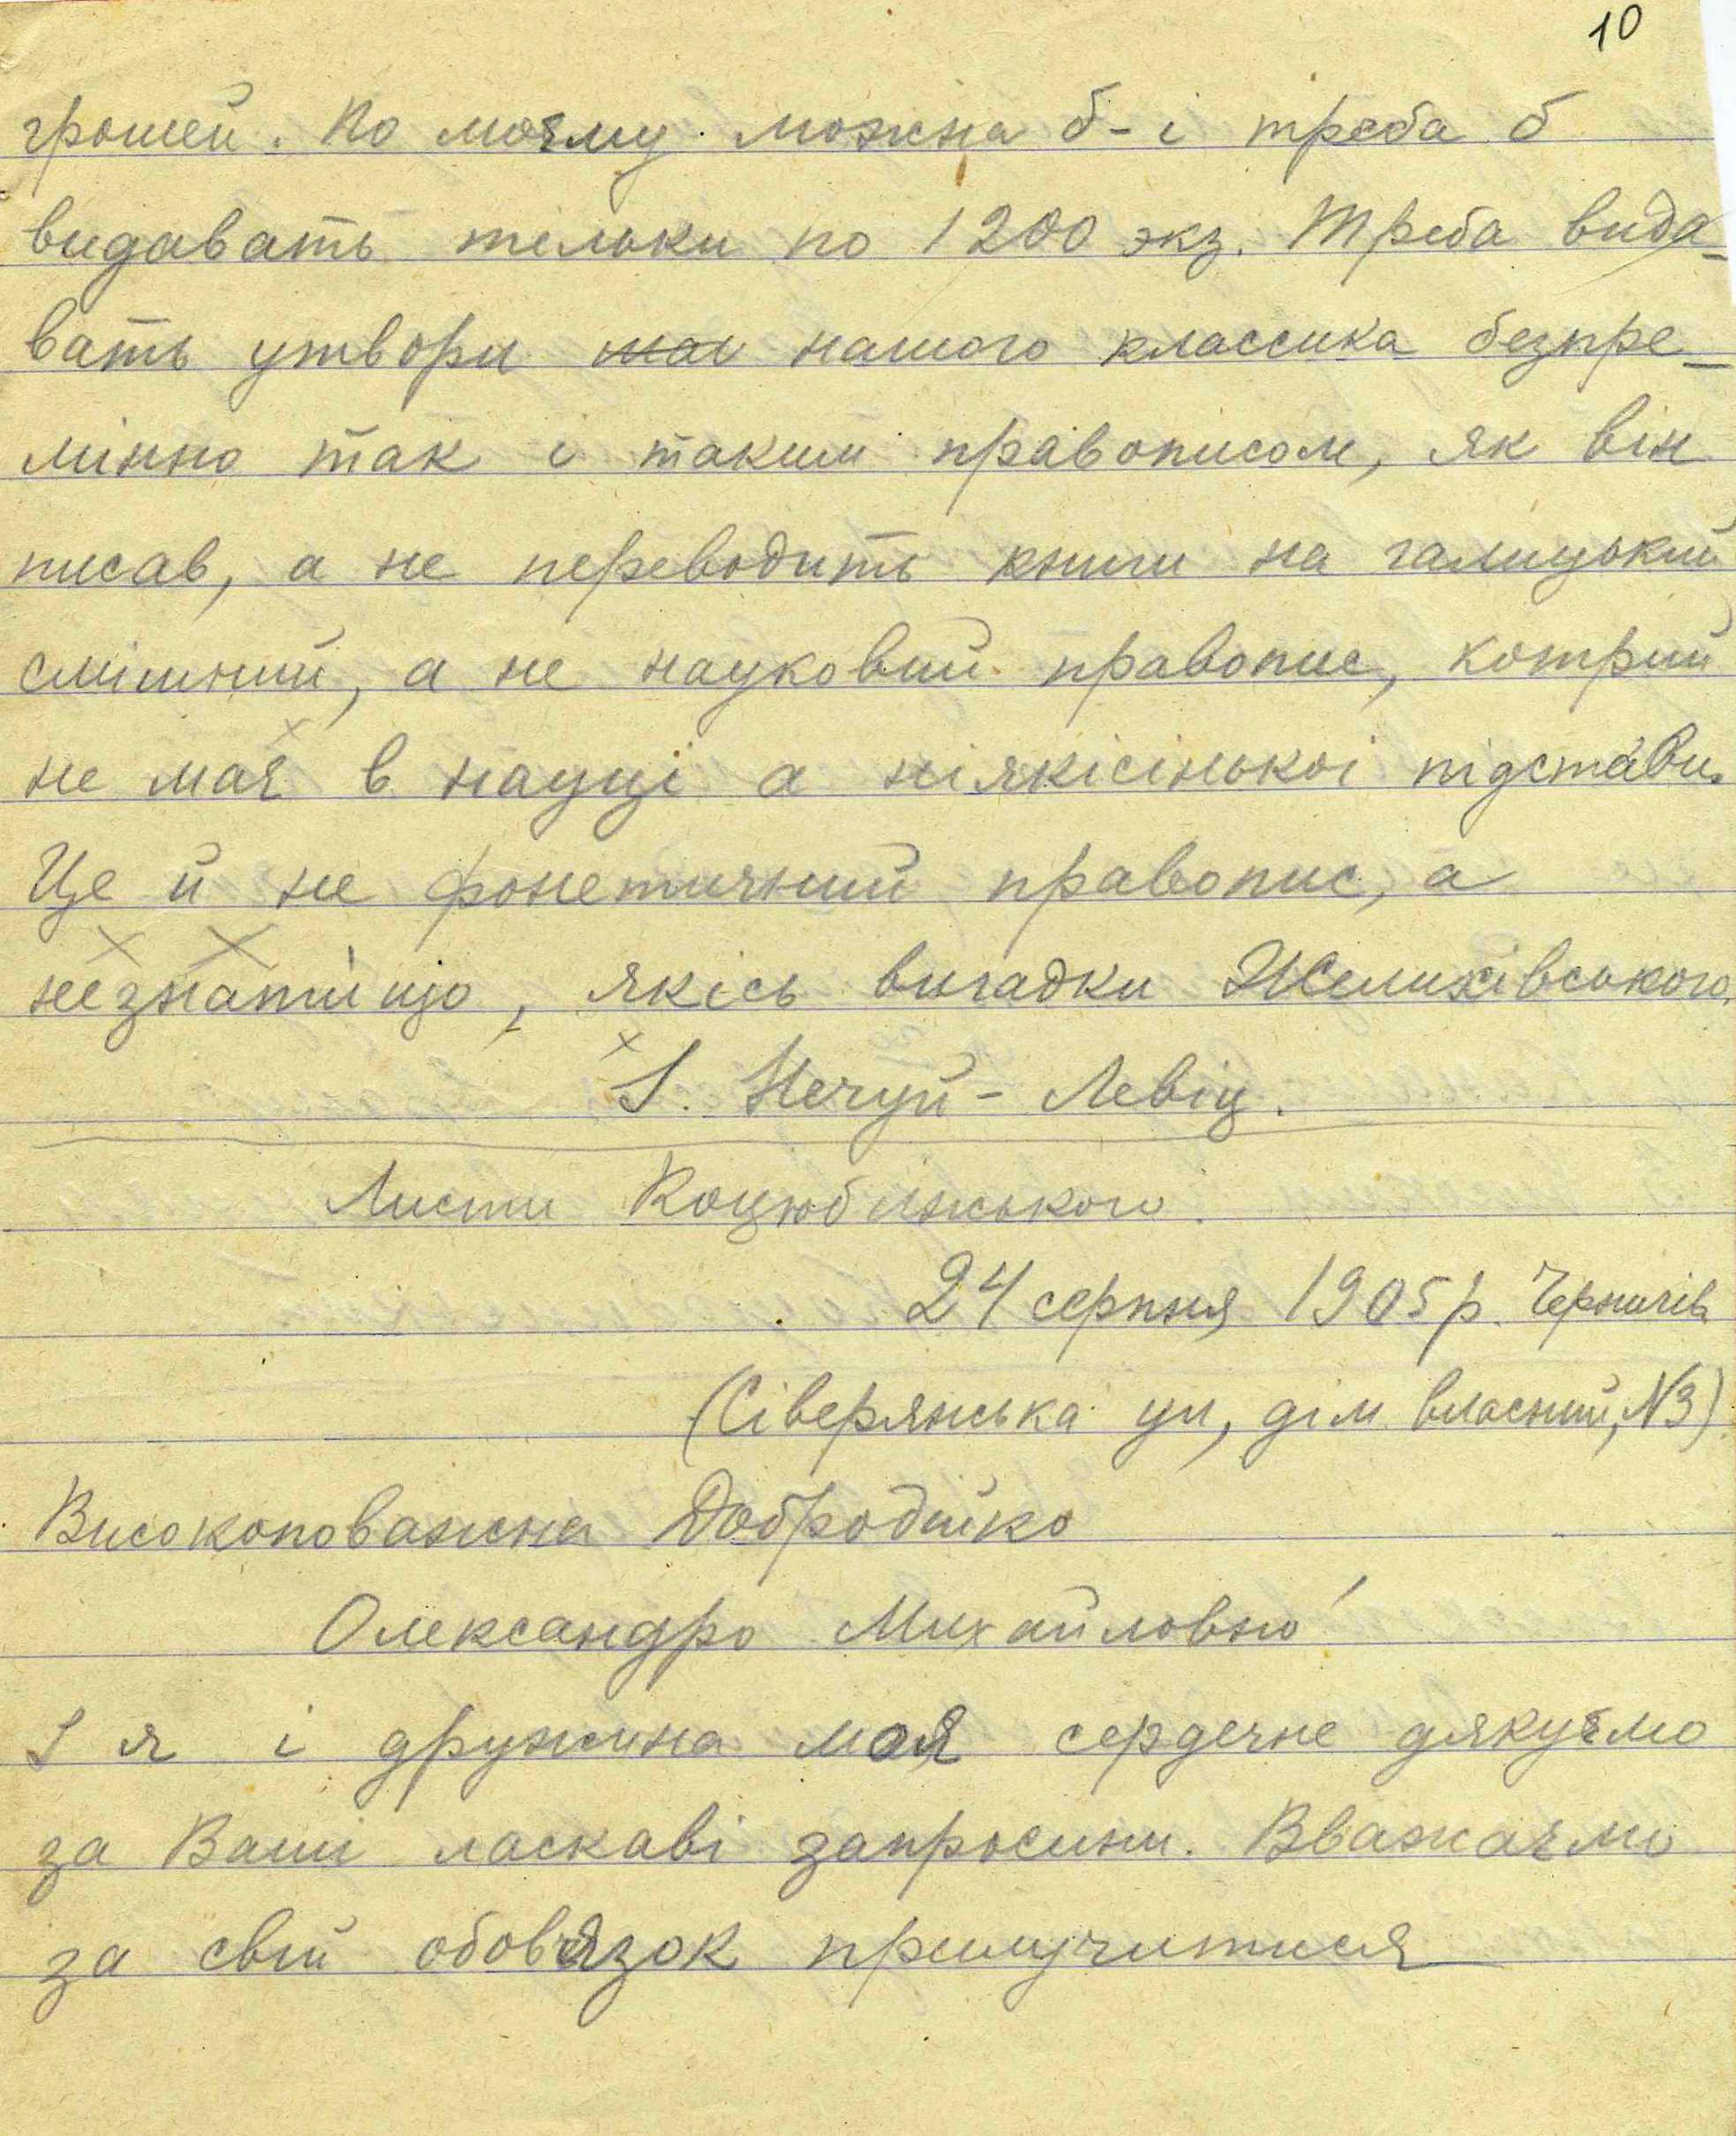 10
грошей. По моєму можна б - і треба б
видавать тельки по 1200 экз. Треба вида-
вать утвори нашого классика безпре-
мінно так і таким правописом, як він
писав, а не переводить книги на галицький
смішний, а не науковий правопис, котрий
не має в науці а ніякісінької підстави.
Це й не фонетичний правопис, а
незнатищо, якісь вигадки Желихівського.
І. Нечуй - Левіц.
Листи Коцюбинського.
24 серпня 1905 р. Чернигів
(Сіверянська ул, дім власний, №3)
Високоповажна Добродійко
Олександро Михайловно!
І я і дружина моя сердечне дякуємо
за Ваші ласкаві запросини. Вважаємо
за свій обов'язок прилучитися